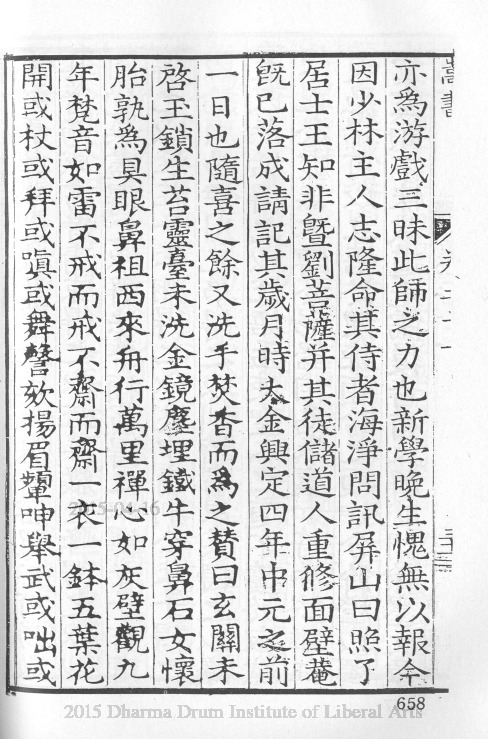 嵩書
亦為游戲三昧此師之力也新學晚生愧無以報今
因少林主人志隆命其侍者海淨問訊屏山曰照了
居士王知非暨劉菩薩并其徒儲道人重修面壁菴
旣已落成請記其歲月時大金興定四年中元之前
一日也隨喜之餘又洗手焚香而為之贊曰玄關未
啓玉鎖生苔靈臺未洗金鏡塵埋鐵牛穿鼻石女懷
胎孰為具眼鼻祖西來舟行萬里禪心如灰壁觀九
年梵音如雷不戒而戒不齋而齋一衣一鉢五葉花
開或杖或拜或嗔或舞謦欬揚眉顰呻舉武或咄或
2015-04-16
658
2015 Dharma Drum Institute of Liberal Arts